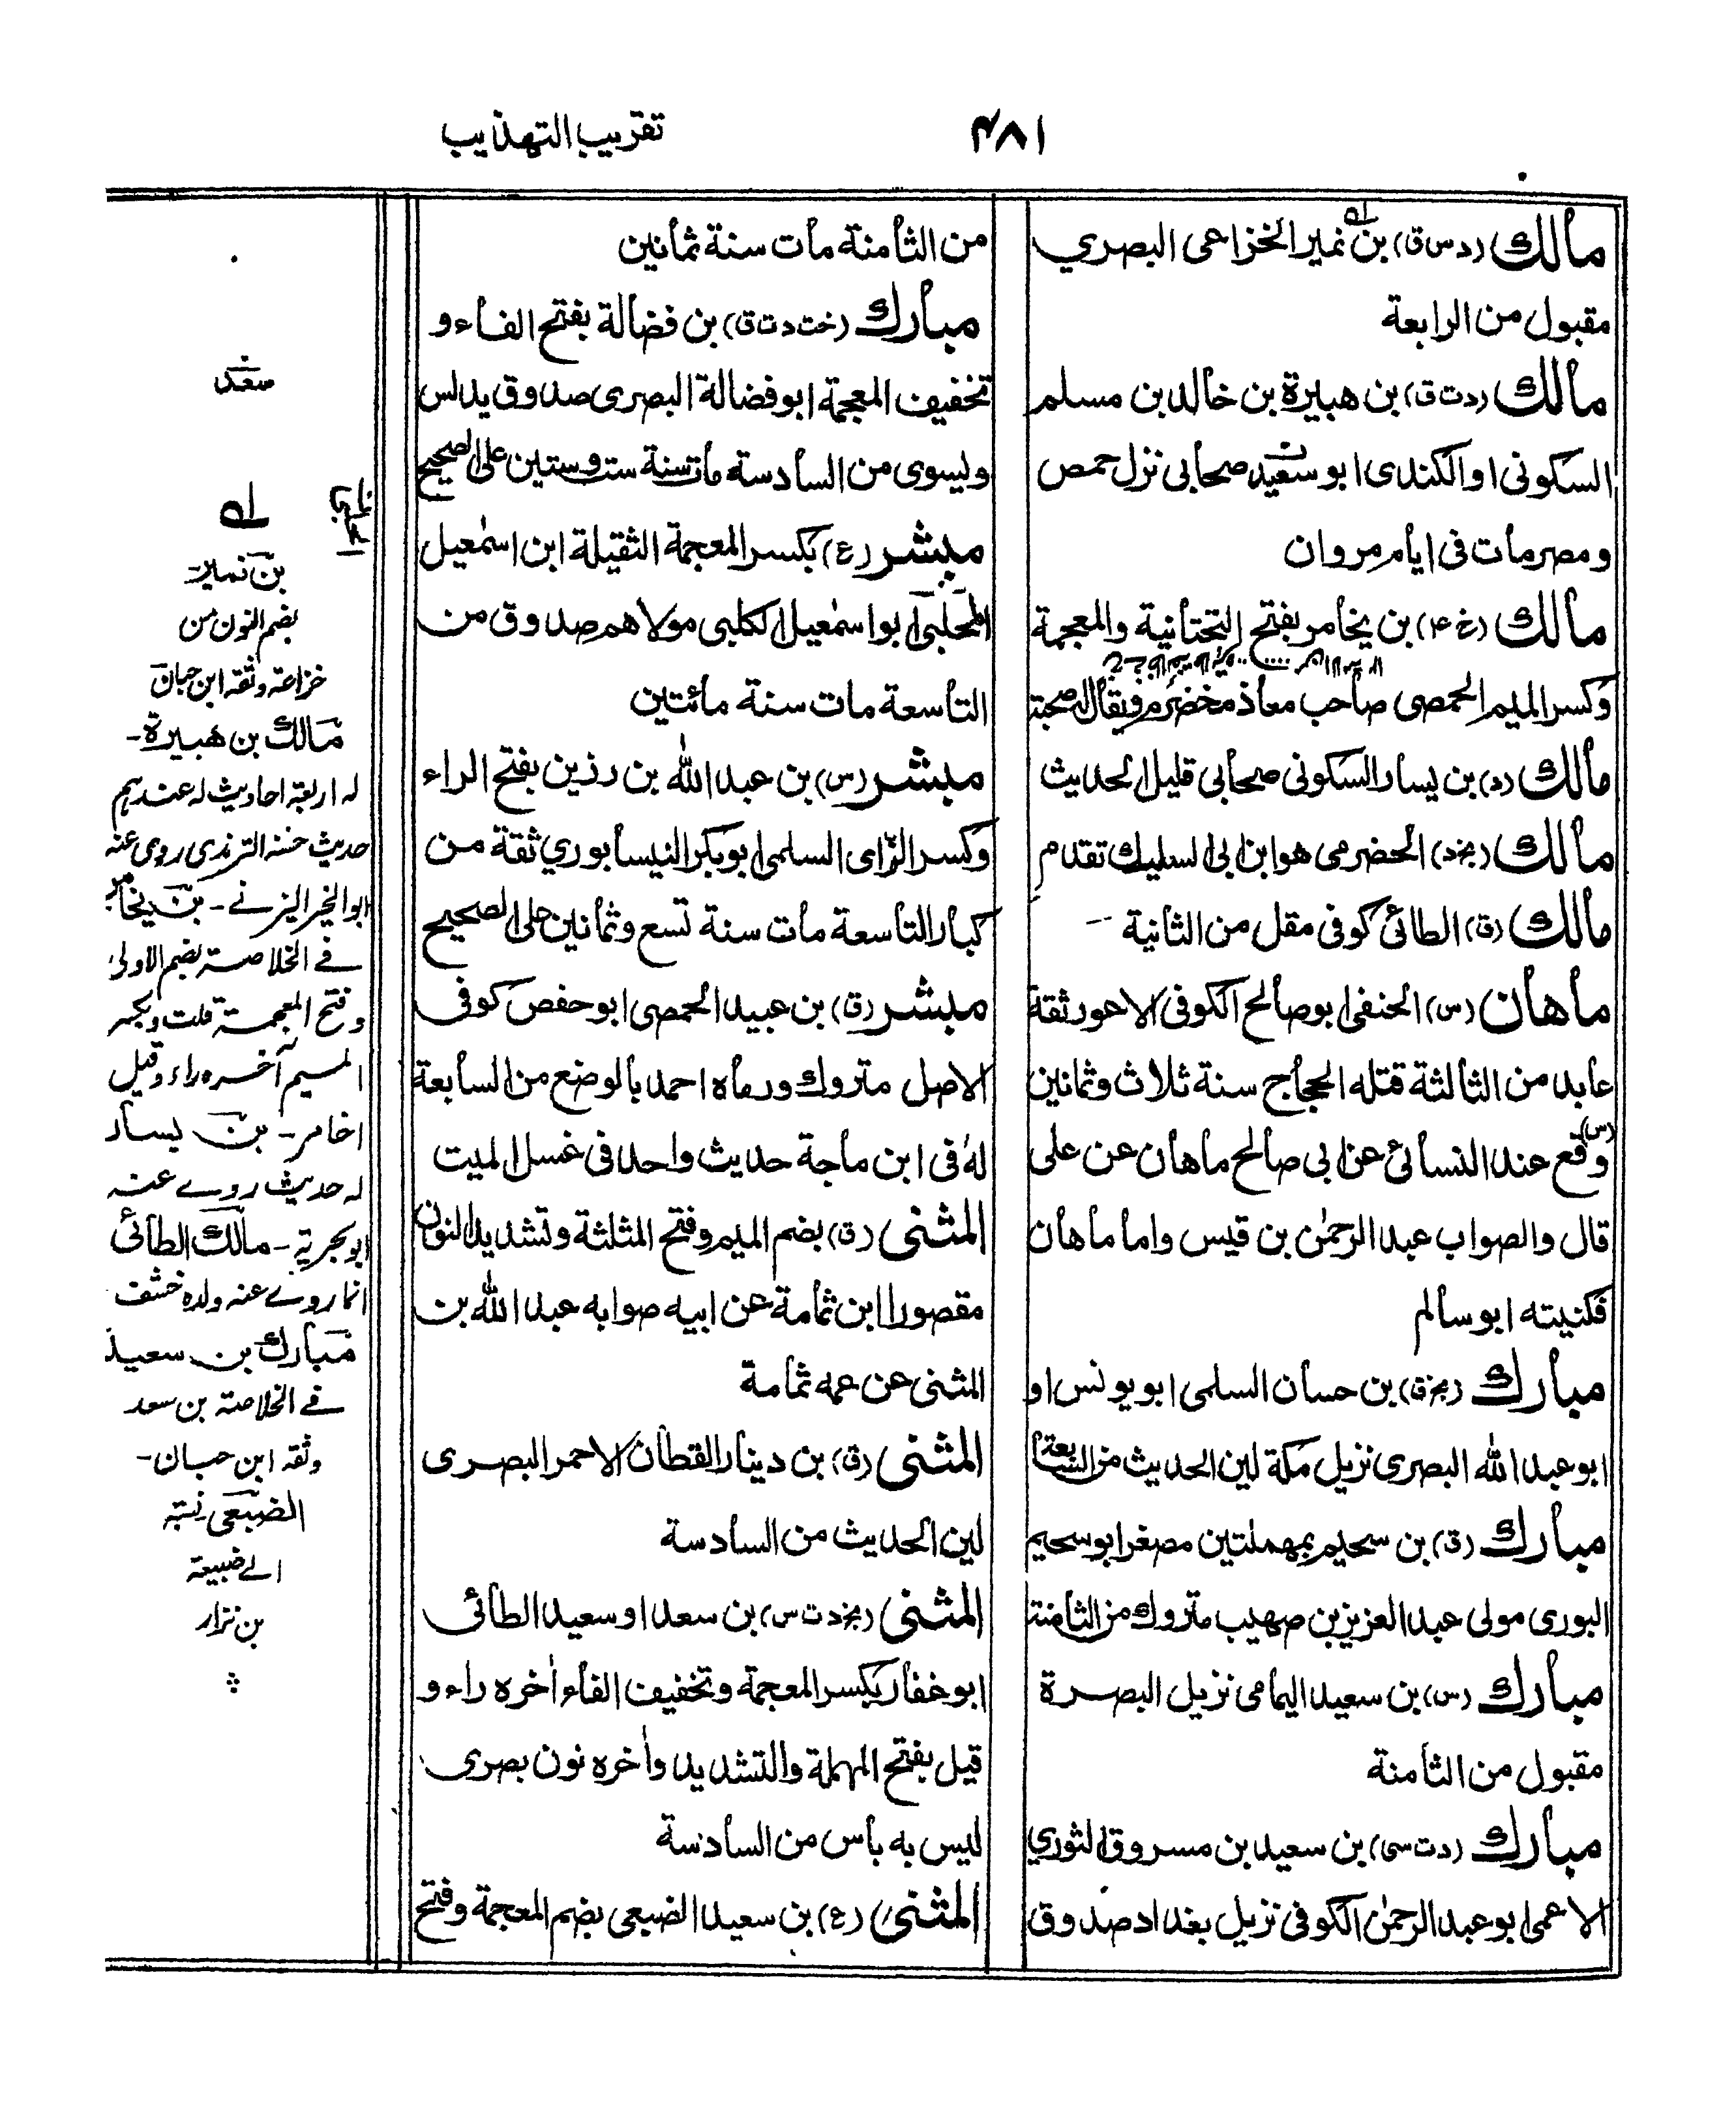 ٤٨١
تقريب التهذيب
مالك (د س ق) بن نمير الخزاعى البصري
مقبول من الرابعة
مالك (د ت ق) بن هبيرة بن خالد بن مسلم
السكونى او الكندى ابو سعيد صحابى نزل حمص
ومصر مات فى ايام مروان
مالك (خ ۴) بن يخامر بفتح التحتانية والمعجمة
وكسر الميم الحمصى صاحب معاذ مخضرم ويقال له صحبة
مالك (د) بن يسار السكونى صحابى قليل الحديث
مالك (بخ د) الحضرمى هو ابن ابى السليك تقدم
مالك (ق) الطائى كوفى مقل من الثانية
ماهان (س) الحنفى ابو صالح الكوفى الاعور ثقة
عابد من الثالثة قتله الحجاج سنة ثلاث وثمانين
(س) وقع عند النسائى عن ابى صالح ماهان عن على
قال والصواب عبد الرحمٰن بن قيس واما ماهان
فكنيته ابو سالم
مبارك (بخ ق) بن حسان السلمى ابو يونس او
ابو عبد الله البصرى نزيل مكة لين الحديث من السابعة
مبارك (ق) بن سحيم بمهملتين مصغر ابو سحيم
البورى مولى عبد العزيز بن صهيب متروك من الثامنة
مبارك (س) بن سعيد اليمامى نزيل البصرة
مقبول من الثامنة
مبارك (د ت سى) بن سعيد بن مسروق الثوري
الاعمى ابو عبد الرحمٰن الكوفى نزيل بغداد صدوق
من الثامنة مات سنة ثمانين
مبارك (خت د ت ق) بن فضالة بفتح الفاء و
تخفيف المعجمة ابو فضالة البصرى صدوق يدلس
ويسوى من السادسة مات سنة ست وستين على الصحيح
مبشر (ع) بكسر المعجمة الثقيلة ابن اسمٰعيل
الحلبى ابو اسمٰعيل الكلبى مولاهم صدوق من
التاسعة مات سنة مائتين
مبشر (س) بن عبد الله بن رزين بفتح الراء
وكسر الزاى السلمى ابو بكر النيسابوري ثقة من
كبار التاسعة مات سنة تسع وثمانين على الصحيح
مبشر (ق) بن عبيد الحمصى ابو حفص كوفى
الاصل متروك ورماه احمد بالوضع من السابعة
له فى ابن ماجة حديث واحد فى غسل الميت
المثنى (ق) بضم الميم وفتح المثلثة وتشديد النون
مقصورا ابن ثمامة عن ابيه صوابه عبد الله بن
المثنى عن عمه ثمامة
المثنى (ق) بن دينار القطان الاحمر البصرى
لين الحديث من السادسة
المثنى (بخ د ت س) بن سعد او سعيد الطائى
ابو غفار بكسر المعجمة وتخفيف الفاء اٰخره راء و
قيل بفتح المهملة والتشديد واٰخره نون بصرى
ليس به بأس من السادسة
المثنى (ع) بن سعيد الضبعى بضم المعجمة وفتح
سعد
له
بن نمير
بضم النون من
خزاعة وثقه ابن حبان
مالك بن هبيرة-
له اربعة احاديث له عندهم
حديث حسنه الترمذى روى عنه
ابو الخير اليزنے - بن يخامر
فے الخلاصة بضم الاولى
وفتح المعجمة قلت وبكسر
الميم آخره راء وقيل
اخامر - بن يسار
له حديث روے عنه
ابو بحرية - مالك الطائى
انما روے عنه ولده خشف
مبارك بن سعيد
فے الخلاصة بن سعد
وثقه ابن حبان-
الضبعى نسبة
الے ضبيعة
بن نزار